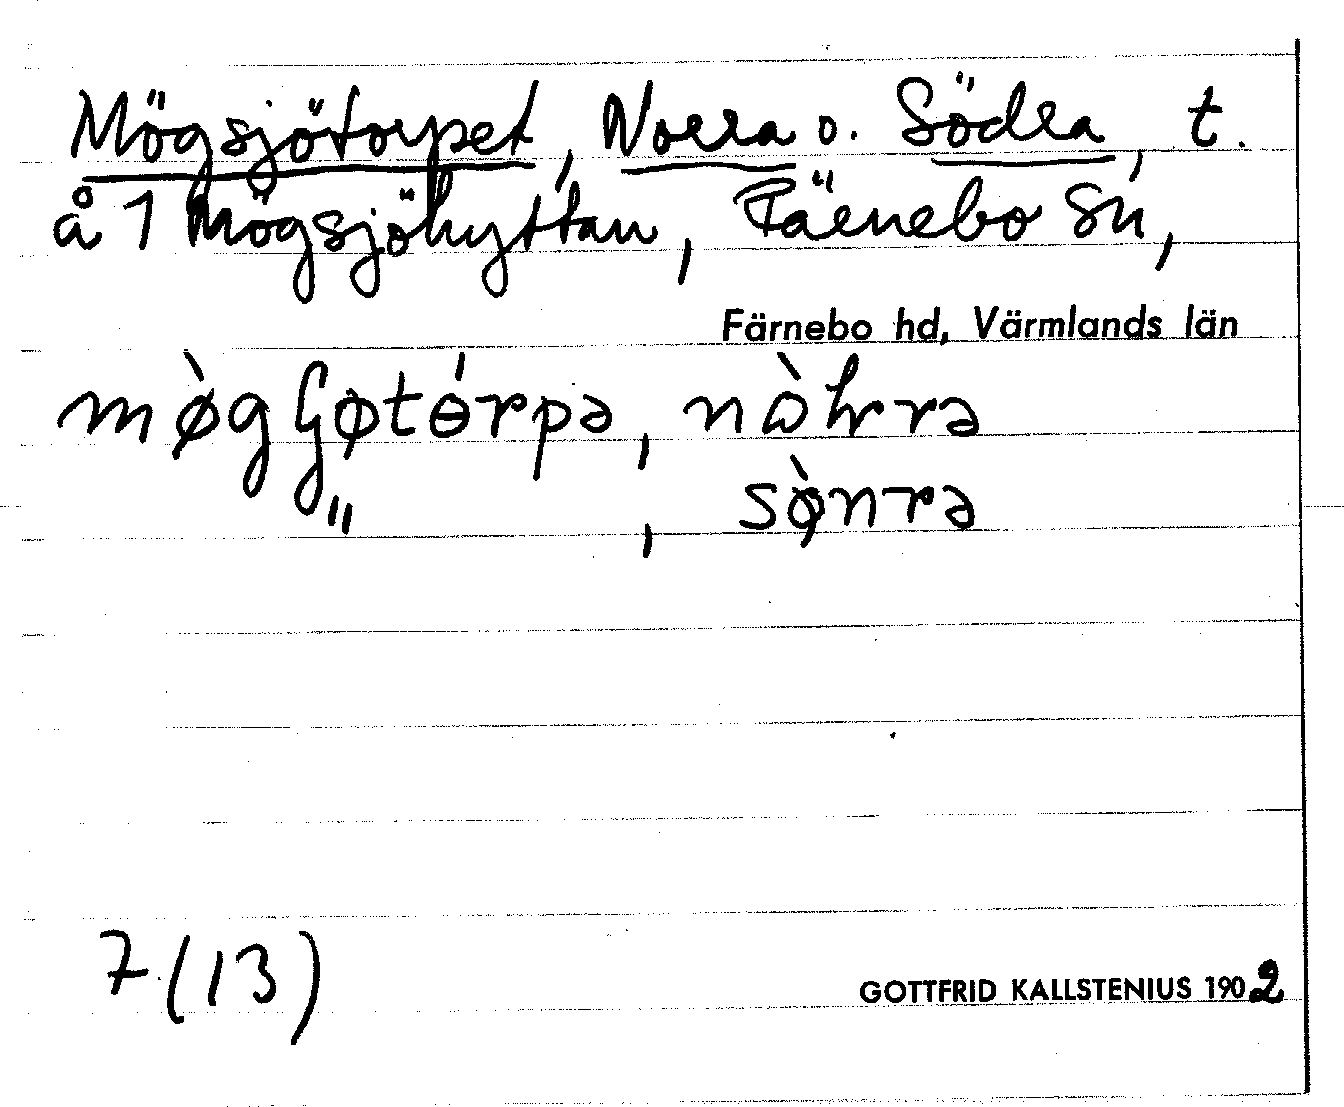 Mögsjötorpet, Norra o. Södra, t.
å 1 Mögsjöhyttan, Färnebo sn,
Färnebo hd, Värmlands län
, sø̀nrə
7 (13)
GOTTFRID KALLSTENIUS 1902